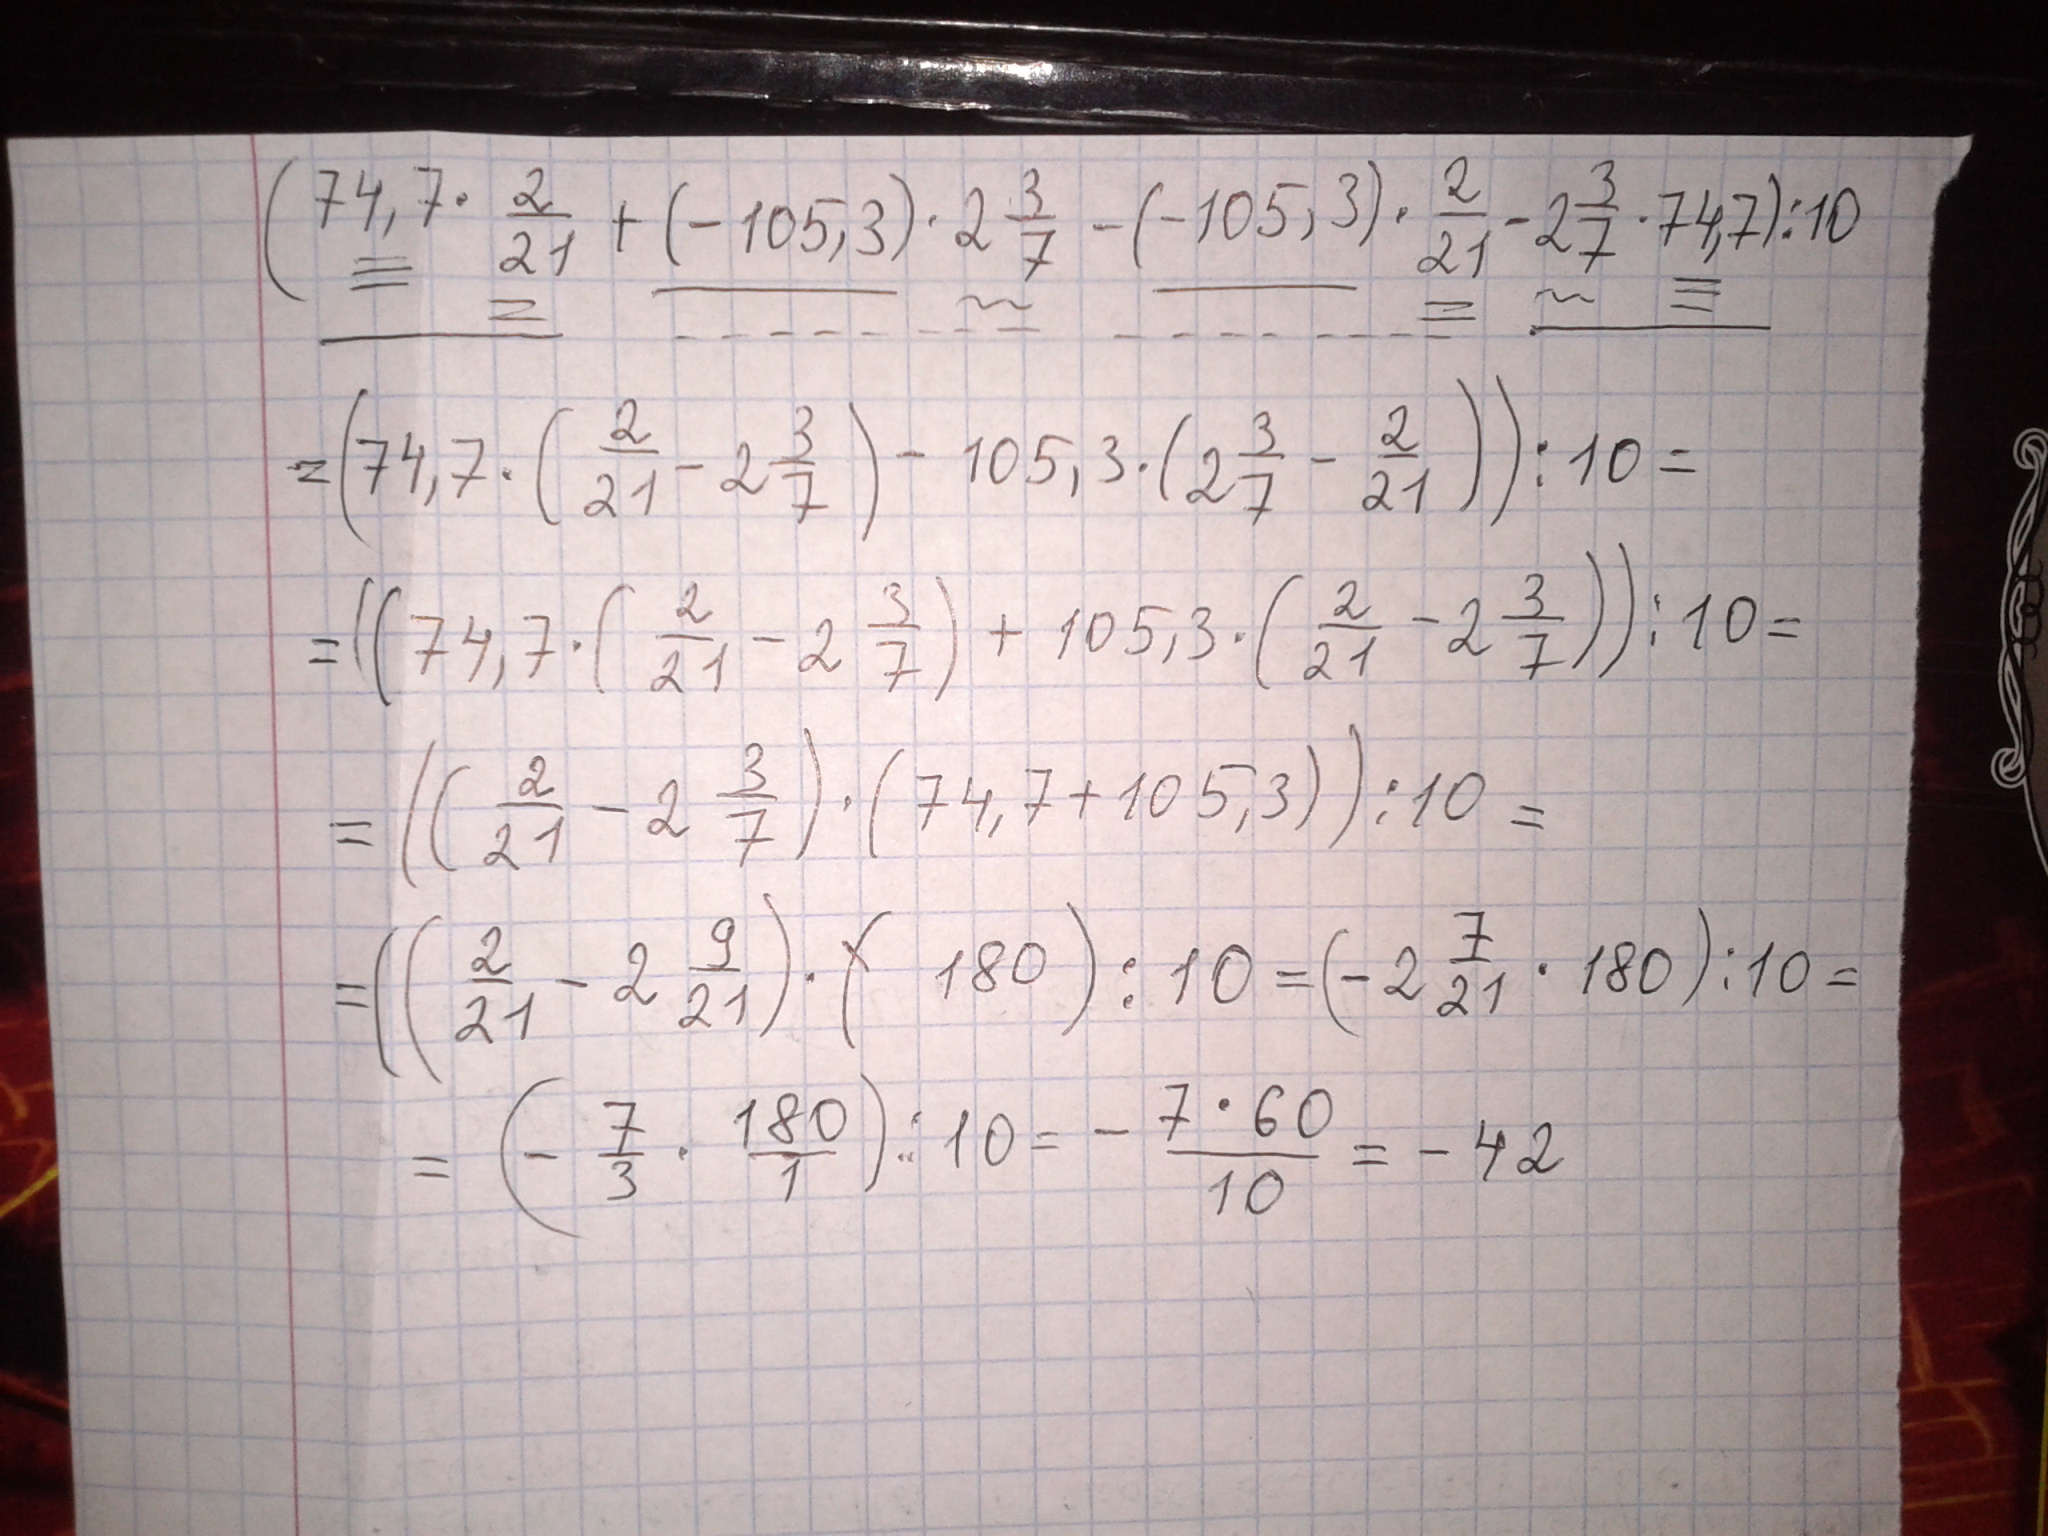 (74,7 · 2/21 + (-105,3) · 2 3/7 - (-105,3) · 2/21 - 2 3/7 · 74,7) : 10
= (74,7 · (2/21 - 2 3/7) - 105,3 · (2 3/7 - 2/21)) : 10 =
= ((74,7 · (2/21 - 2 3/7) + 105,3 · (2/21 - 2 3/7)) : 10 =
= ((2/21 - 2 3/7) · (74,7 + 105,3)) : 10 =
= ((2/21 - 2 9/21) · (180) : 10 = (-2 7/21 · 180) : 10 =
= (- 7/3 · 180/1) : 10 = - 7 · 60/10 = - 42